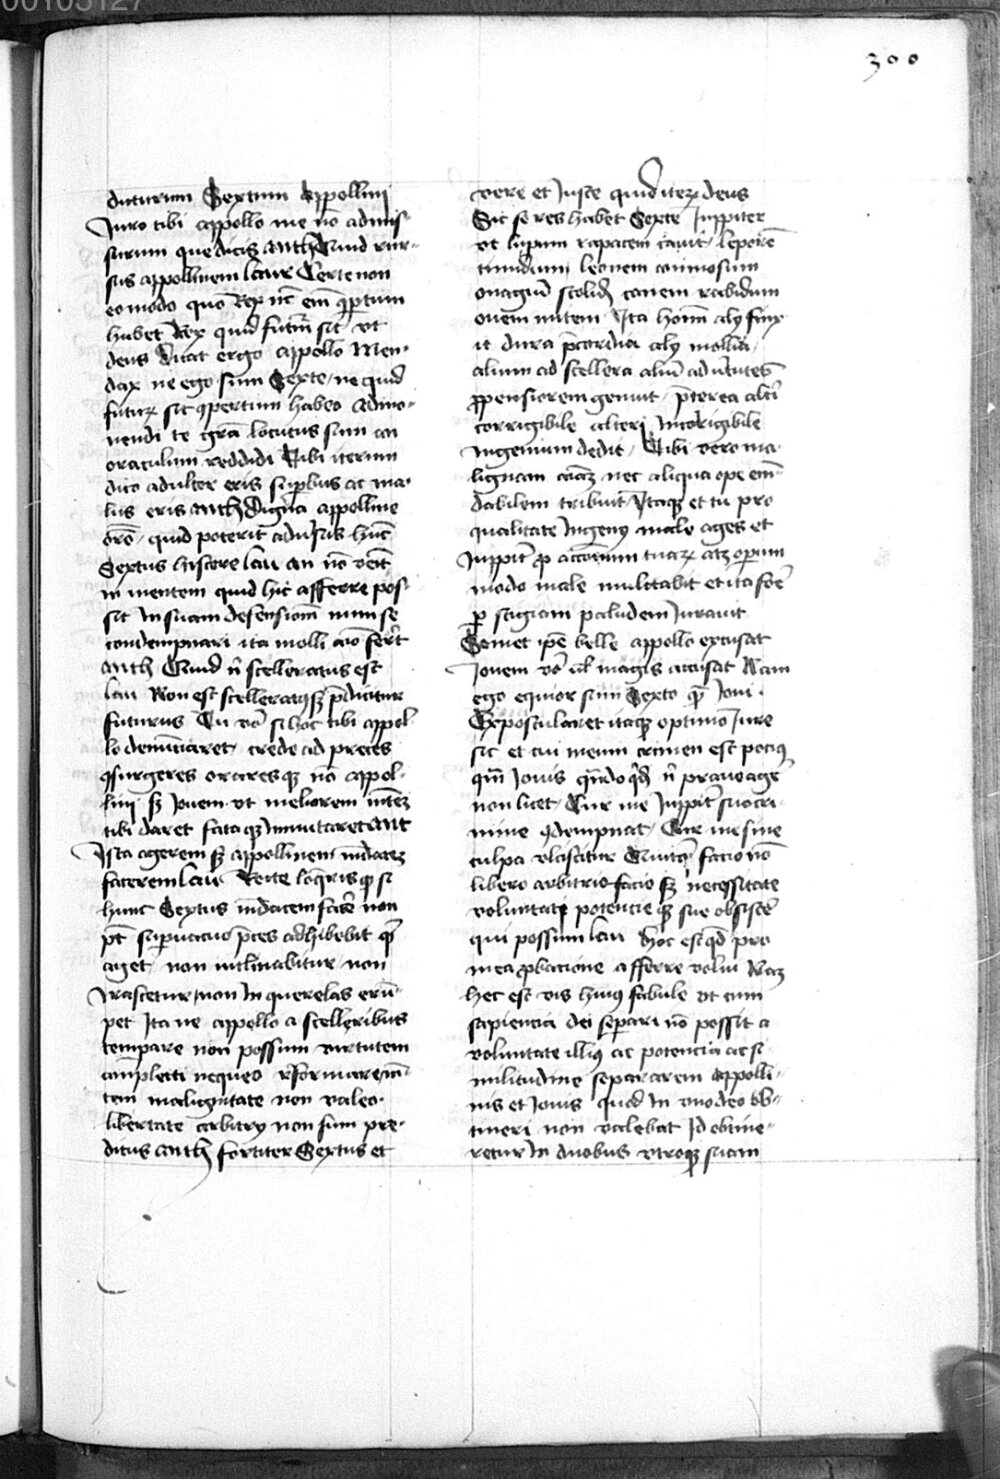 00105127
300
dicturum Sextum Appollini
Juro tibi appollo me nō admis-
surum que dicis Anth Quid rur-
sus appollinem Laur Certe non
eo modo quo Rex nec em̄ ꝯptum
habet Rex quid futuꝝ sit vt
deus Dicat ergo appollo Men-
dax ne ego sum Sexte / ne quid
futuꝝ sit ꝯpertum habeo Admo-
nendi te grā locutus sum an
oraculum reddidi Tibi iterum
dico adulter eris suꝑbus ac ma-
lus eris Anth Digna appolline
orō / quid poterit adūsus hūc
Sextus hiscere Lau an nō venit
in mentem quid hic afferre pos-
sit In suam defensionē num se
condempnari ita molli aīo feret
Anth Quid nī sceleratus est
Lau Non est sceleratus sꝫ p̄dicitur
futurus Tu vō si hoc tibi appol
lo denūciaret / crede ad preces
ꝯsurgeres oraresqꝫ nō appol-
linē sꝫ Jouem vt meliorem mētē
tibi daret fataqꝫ Inmutaret Ant
Ista agerem sꝫ appollinem mēdacē
facerem Lau Recte loq̄ris qꝫ si
hunc Sextus mēdacem facē non
pt̄ supuacuo p̄ces adhibebit qͥd
aget non indignabitur / non
Irascetur / non In querelas erū-
pet Ita ne appollo a sceleribus
tempare non possum virtutem
amplecti nequeo reformare mē-
tem malignitate non valeo
libertate arbitrij non sum pre-
ditus Anth fortiter Sextus et
vere et Juste quid iteꝝ deus
Sic se res habet Sexte Juppiter
vt lupum rapacem creauit / leporē
timidum leonem animosum
onagrū stolidū canem rabidum
ouem mitem Ita hoīm alij finx-
it dura p̄cordia alij mollia /
alium ad scellera aliū ad v̄tutes
ꝓpensiorem genuit / p̄terea altī
corrigibile alteri Incorigibile
Ingenium dedit / Tibi vero ma-
lignam aīaꝫ nec aliqua ope em̄-
dabilem tribuit Itaqꝫ et tu pro
qualitate Ingenij male ages et
Juppiter ꝓ accionum tuaꝝ atqꝫ operum
modo male multabit et ita fore
ꝑ stigiam paludem Jurauit
Semet ip̄e belle appollo excusat
Jouem vō vł magis accusat Nam
ego equior sum Sexto qꝫ Joui
Expostularet itaqꝫ optimo Jure
sic et cui meum crimen est pocius
qm̄ Jouis qn̄do qͥd nī praue agē
non licet / Cur me Juppit̄ suo cri-
mine ꝯdempnat / Cur me sine
culpa vlciscitur Quitqͥd facio nō
libero arbitrio facio sꝫ necessitate
voluntati potencie qꝫ sue obsistē
qui possum Lau Hoc est qd̄ pro
mea ꝓbacione afferre volui Naꝫ
hec est vis huiꝰ fabule vt cum
sapiencia dei seꝑari nō possit a
voluntate illiꝰ ac potencia ac si-
militudine separarem Appolli-
nis et Jouis quod In vno deo ob-
tineri non valebat Id obtine-
retur In duobus vtroqꝫ suam